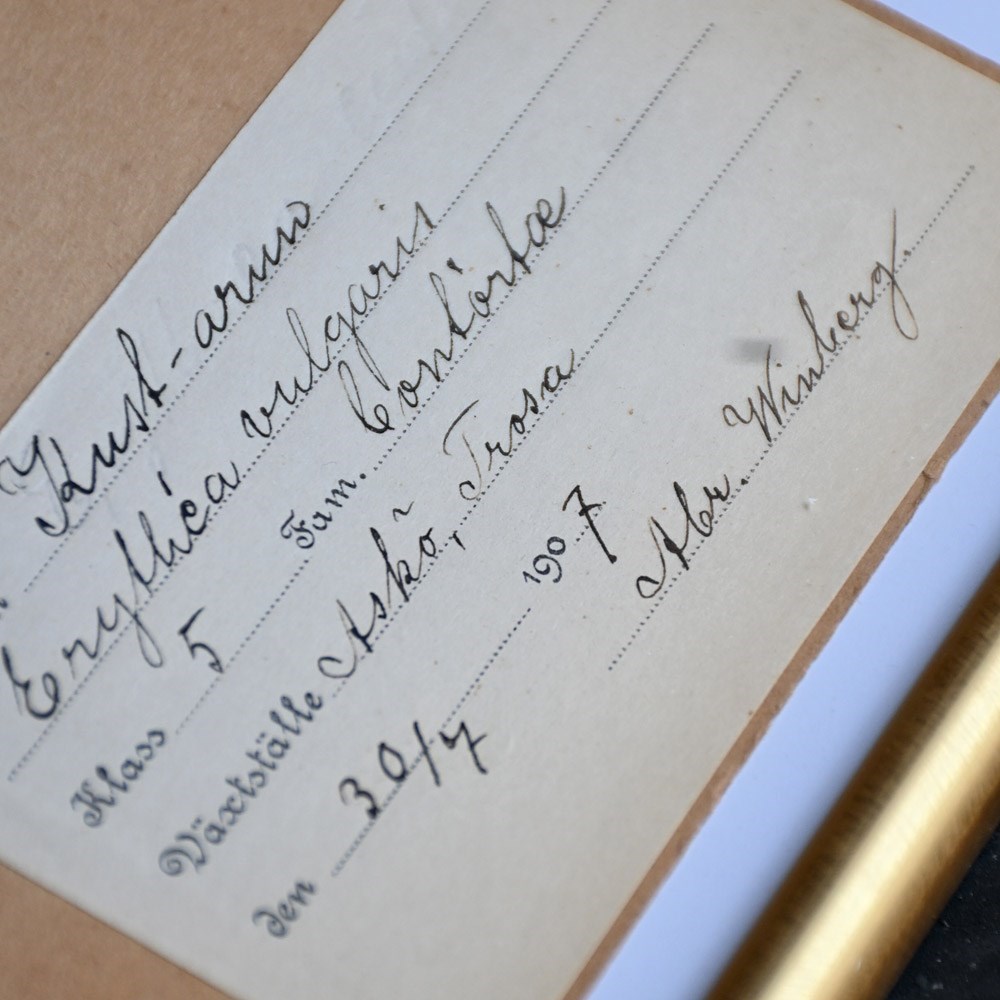 Kust-arun
Erythrea vulgaris
Klass 5 Fam. Contórtæ
Växtställe Askö, Trosa
den 30/7 1907
Abr. Winberg.